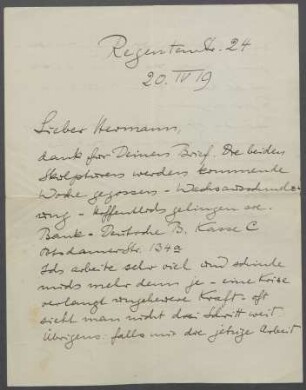 Regentenstr. 24
20. IV 19
Lieber Hermann,
dank for Deinen Brief. Die beiden
Skulpturen werden kommende
Woche gegossen -
- hoffentlich gelingen sie.
Bank - Deutsche B. Kasse C
Potsdamerstr. 134a
Ich arbeite sehr viel und schinde
mich mehr denn je - eine Krise
verlangt ungeheure Kraft - oft
sieht man nicht drei Schritt weit
Übrigens: falls mir die jetzige Arbeit